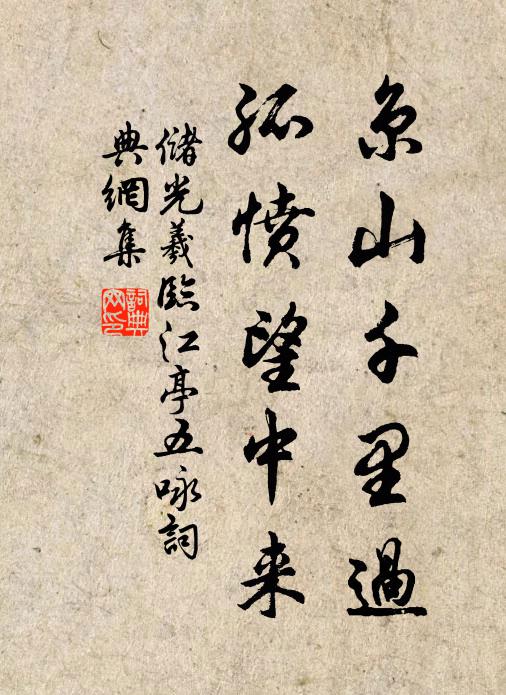 京山千里過
孤憤望中来
儲光羲臨江亭五咏詞
典網集
詞典
网印